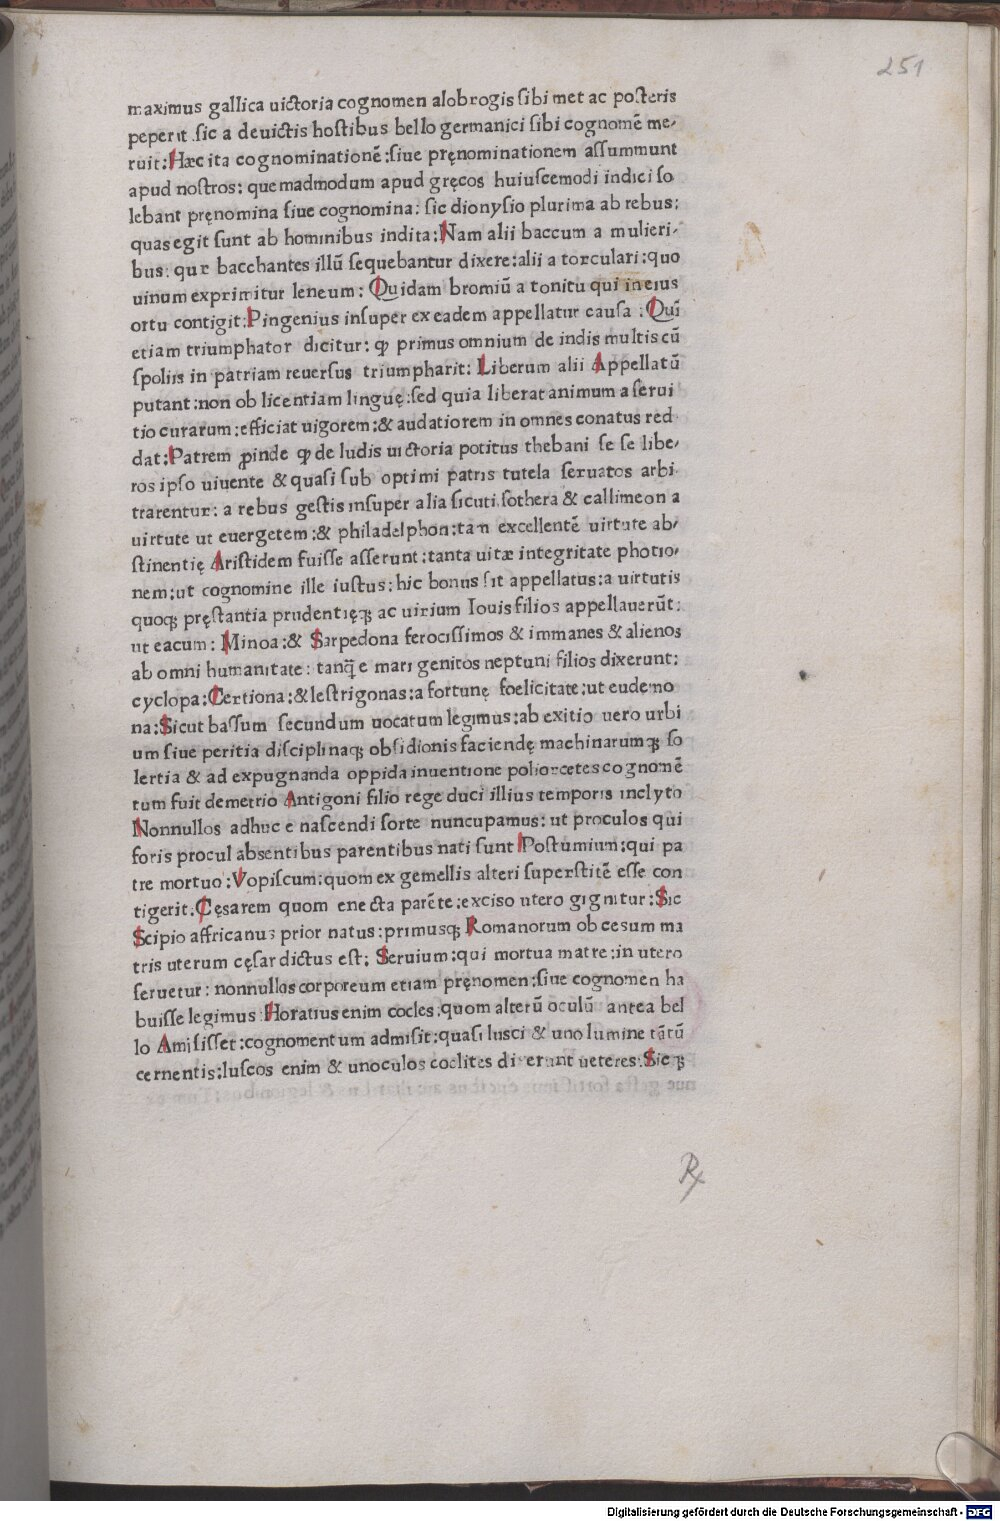 251
maximus gallica uictoria cognomen alobrogis sibi met ac posteris
peperit .sic a deuictis hostibus bello germanici sibi cognomē me⸗
ruit: Hæc ita cognominationē: siue pręnominationem assummunt
apud nostros: quemadmodum apud gręcos huiuscemodi indici so
lebant pręnomina siue cognomina: sic dionysio plurima ab rebus:
quas egit sunt ab hominibus indita: Nam alii baccum a mulieri⸗
bus: quæ bacchantes illū sequebantur dixere: alii a torculari: quo
uinum exprimitur leneum: Quidam bromiū a tonitu qui in eius
ortu contigit: Pingenius insuper ex eadem appellatur causa: Qui
etiam triumphator dicitur: ꝙ primus omnium de indis multis cū
spoliis in patriam reuersus triumpharit: Liberum alii Appellatū
putant: non ob licentiam linguę: sed quia liberat animum a serui
tio curarum: efficiat uigorem: & audatiorem in omnes conatus red
dat: Patrem ꝓinde ꝙ de ludis uictoria potitus thebani se se libe⸗
ros ipso uiuente & quasi sub optimi patris tutela seruatos arbi
trarentur: a rebus gestis insuper alia sicuti sothera & callimeon a
uirtute ut euergetem: & philadelphon: tan excellentē uirtute ab⸗
stinentię Aristidem fuisse asserunt: tanta uitæ integritate photio⸗
nem: ut cognomine ille iustus: hic bonus sit appellatus: a uirtutis
quoqꝫ pręstantia prudentięqꝫ ac uirium Iouis filios appellauerūt:
ut eacum: Minoa: & Sarpedona ferocissimos & immanes & alienos
ab omni humanitate: tanq̄ e mari genitos neptuni filios dixerunt:
cyclopa: Certiona: & lestrigonas: a fortunę foelicitate: ut eudemo
na: Sicut bassum secundum uocatum legimus: ab exitio uero urbi
um siue peritia disciplinaqꝫ obsidionis faciendę machinarumqꝫ so
lertia & ad expugnanda oppida inuentione poliorcetes cognomē
tum fuit demetrio Antigoni filio rege duci illius temporis inclyto
Nonnullos adhuc e nascendi sorte nuncupamus: ut proculos qui
foris procul absentibus parentibus nati sunt Postumium: qui pa
tre mortuo: Vopiscum: quom ex gemellis alteri superstitē esse con
tigerit: Cęsarem quom enecta parēte: exciso utero gignitur: Sic
Scipio affricanus prior natus: primusqꝫ Romanorum ob cesum ma
tris uterum cęsar dictus est: Seruium: qui mortua matre: in utero
seruetur: nonnullos corporeum etiam pręnomen: siue cognomen ha
buisse legimus Horatius enim cocles: quom alterū oculū antea bel
lo Amisisset: cognomentum admisit: quasi lusci & uno lumine tātū
cernentis: luscos enim & unoculos coclites dixerunt ueteres: Sicqꝫ
Digitalisierung gefördert durch die Deutsche Forschungsgemeinschaft - DFG